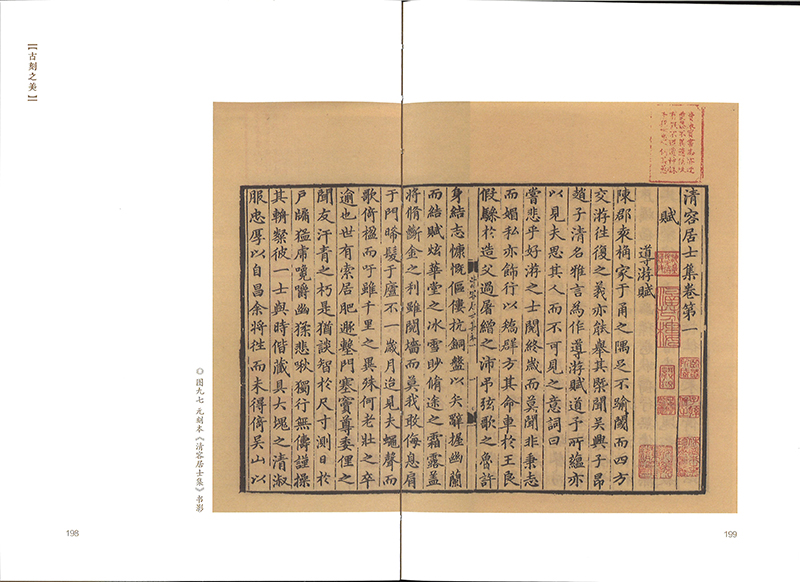 【古刻之美】
清容居士集卷第一
賦
導游賦
陳郡 楀家于甬之隅足不踰閾而四方
交游往復之義亦能舉其槩聞吳興子昂
趙子清名雅言為作導游賦道予所蘊亦
以見夫思其人而不可見之意詞曰
嘗悲乎好游之士閱終歲而莫聞非秉志
而媚私亦飾行以矯群方其命車於王良
假驂於造父過屠繒之沛弔弦歌之魯許
身結志慷慨傴僂抗銅盤以矢辭握幽蘭
而結賦炫華堂之冰雪眇脩途之霜露蓋
將脩斷金之利雖鬩墻而莫我敢侮息肩
于門晞髮于廬不一歲月迨見夫蠅聲而
歌倚楹而吁雖千里之異殊何老壯之卒
逾也世有索居肥遯墼門塞竇尊委俚之
聞友汗青之朽是猶談智於尺寸測日於
戶牖猛 嚼幽猱悲啾獨行無儔謹操
其 察彼一士與時偕藏具大塊之清淑
服忠厚以自昌余將往而未得倚吳山以
◎ 图九七 元刻本《清容居士集》书影
198
199